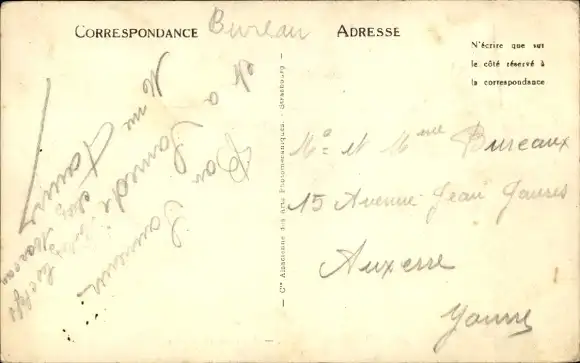 CORRESPONDANCE
Bureau
ADRESSE
N'écrire que sur
le côté réservé à
la correspondance
Bon Souvenir
et à Samedi
Mme
Cie Alsacienne des Arts Photomécaniques. - Strasbourg
Mr et Mme Bureaux
15 Avenue Jean Jaures
Auxerre
Yonne